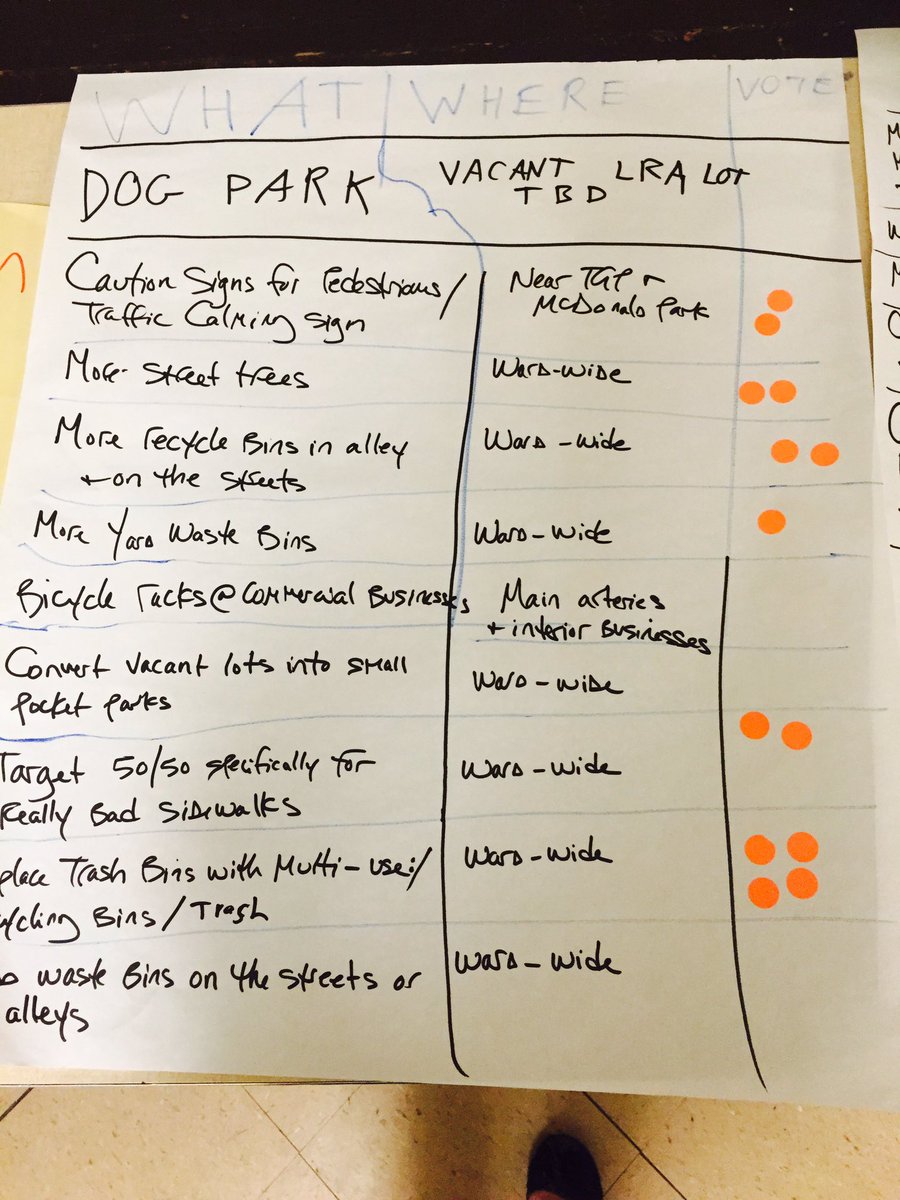 WHAT WHERE VOTE
DOG PARK
VACANT LRA LOT
TBD
Caution Signs for Pedestrians/
Traffic Calming Sign
Near TGP +
McDonald Park
More street trees
Ward-wide
More recycle Bins in alley
+ on the streets
Ward-wide
More Yard Waste Bins
Ward-wide
Bicycle racks @ commercial Businesses
Main arteries
+ interior Businesses
Convert vacant lots into small
pocket parks
Ward-wide
Target 50/50 specifically for
really Bad Sidewalks
Ward-wide
place Trash Bins with Multi-use:/
ycling Bins/Trash
Ward-wide
waste Bins on the streets or
alleys
Ward-wide